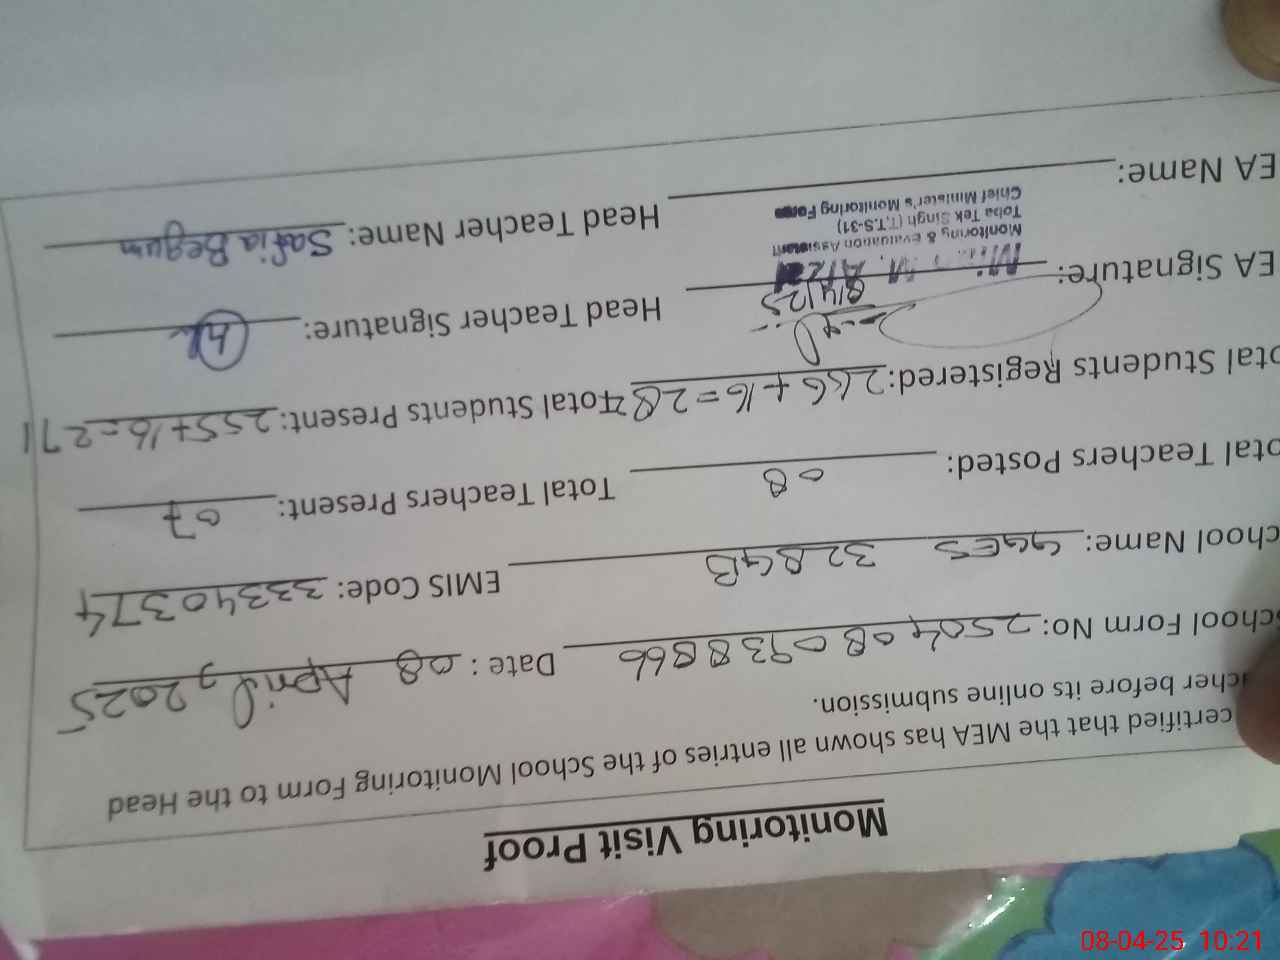 Monitoring Visit Proof
certified that the MEA has shown all entries of the School Monitoring Form to the Head
cher before its online submission.
chool Form No: 2504080938866 Date: 08 April, 2025
chool Name: GGES 328GB EMIS Code: 33340374
otal Teachers Posted: 08 Total Teachers Present: 07
otal Students Registered: 266+16=282 Total Students Present: 255+16=271
EA Signature: 8/4/25 Head Teacher Signature:
Monitoring & Evaluation Assistant
Toba Tek Singh (T.S-31)
Chief Minister's Monitoring Force
EA Name: Head Teacher Name: Safia Begum
08-04-25 10:21